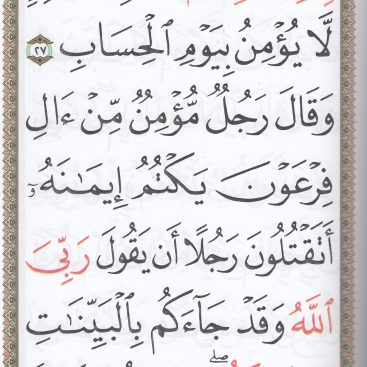 لَّا يُؤْمِنُ بِيَوْمِ ٱلْحِسَابِ ٢٧
وَقَالَ رَجُلٌ مُّؤْمِنٌ مِّنْ ءَالِ
فِرْعَوْنَ يَكْتُمُ إِيمَٰنَهُۥٓ
أَتَقْتُلُونَ رَجُلًا أَن يَقُولَ رَبِّيَ
ٱللَّهُ وَقَدْ جَآءَكُم بِٱلْبَيِّنَٰتِ